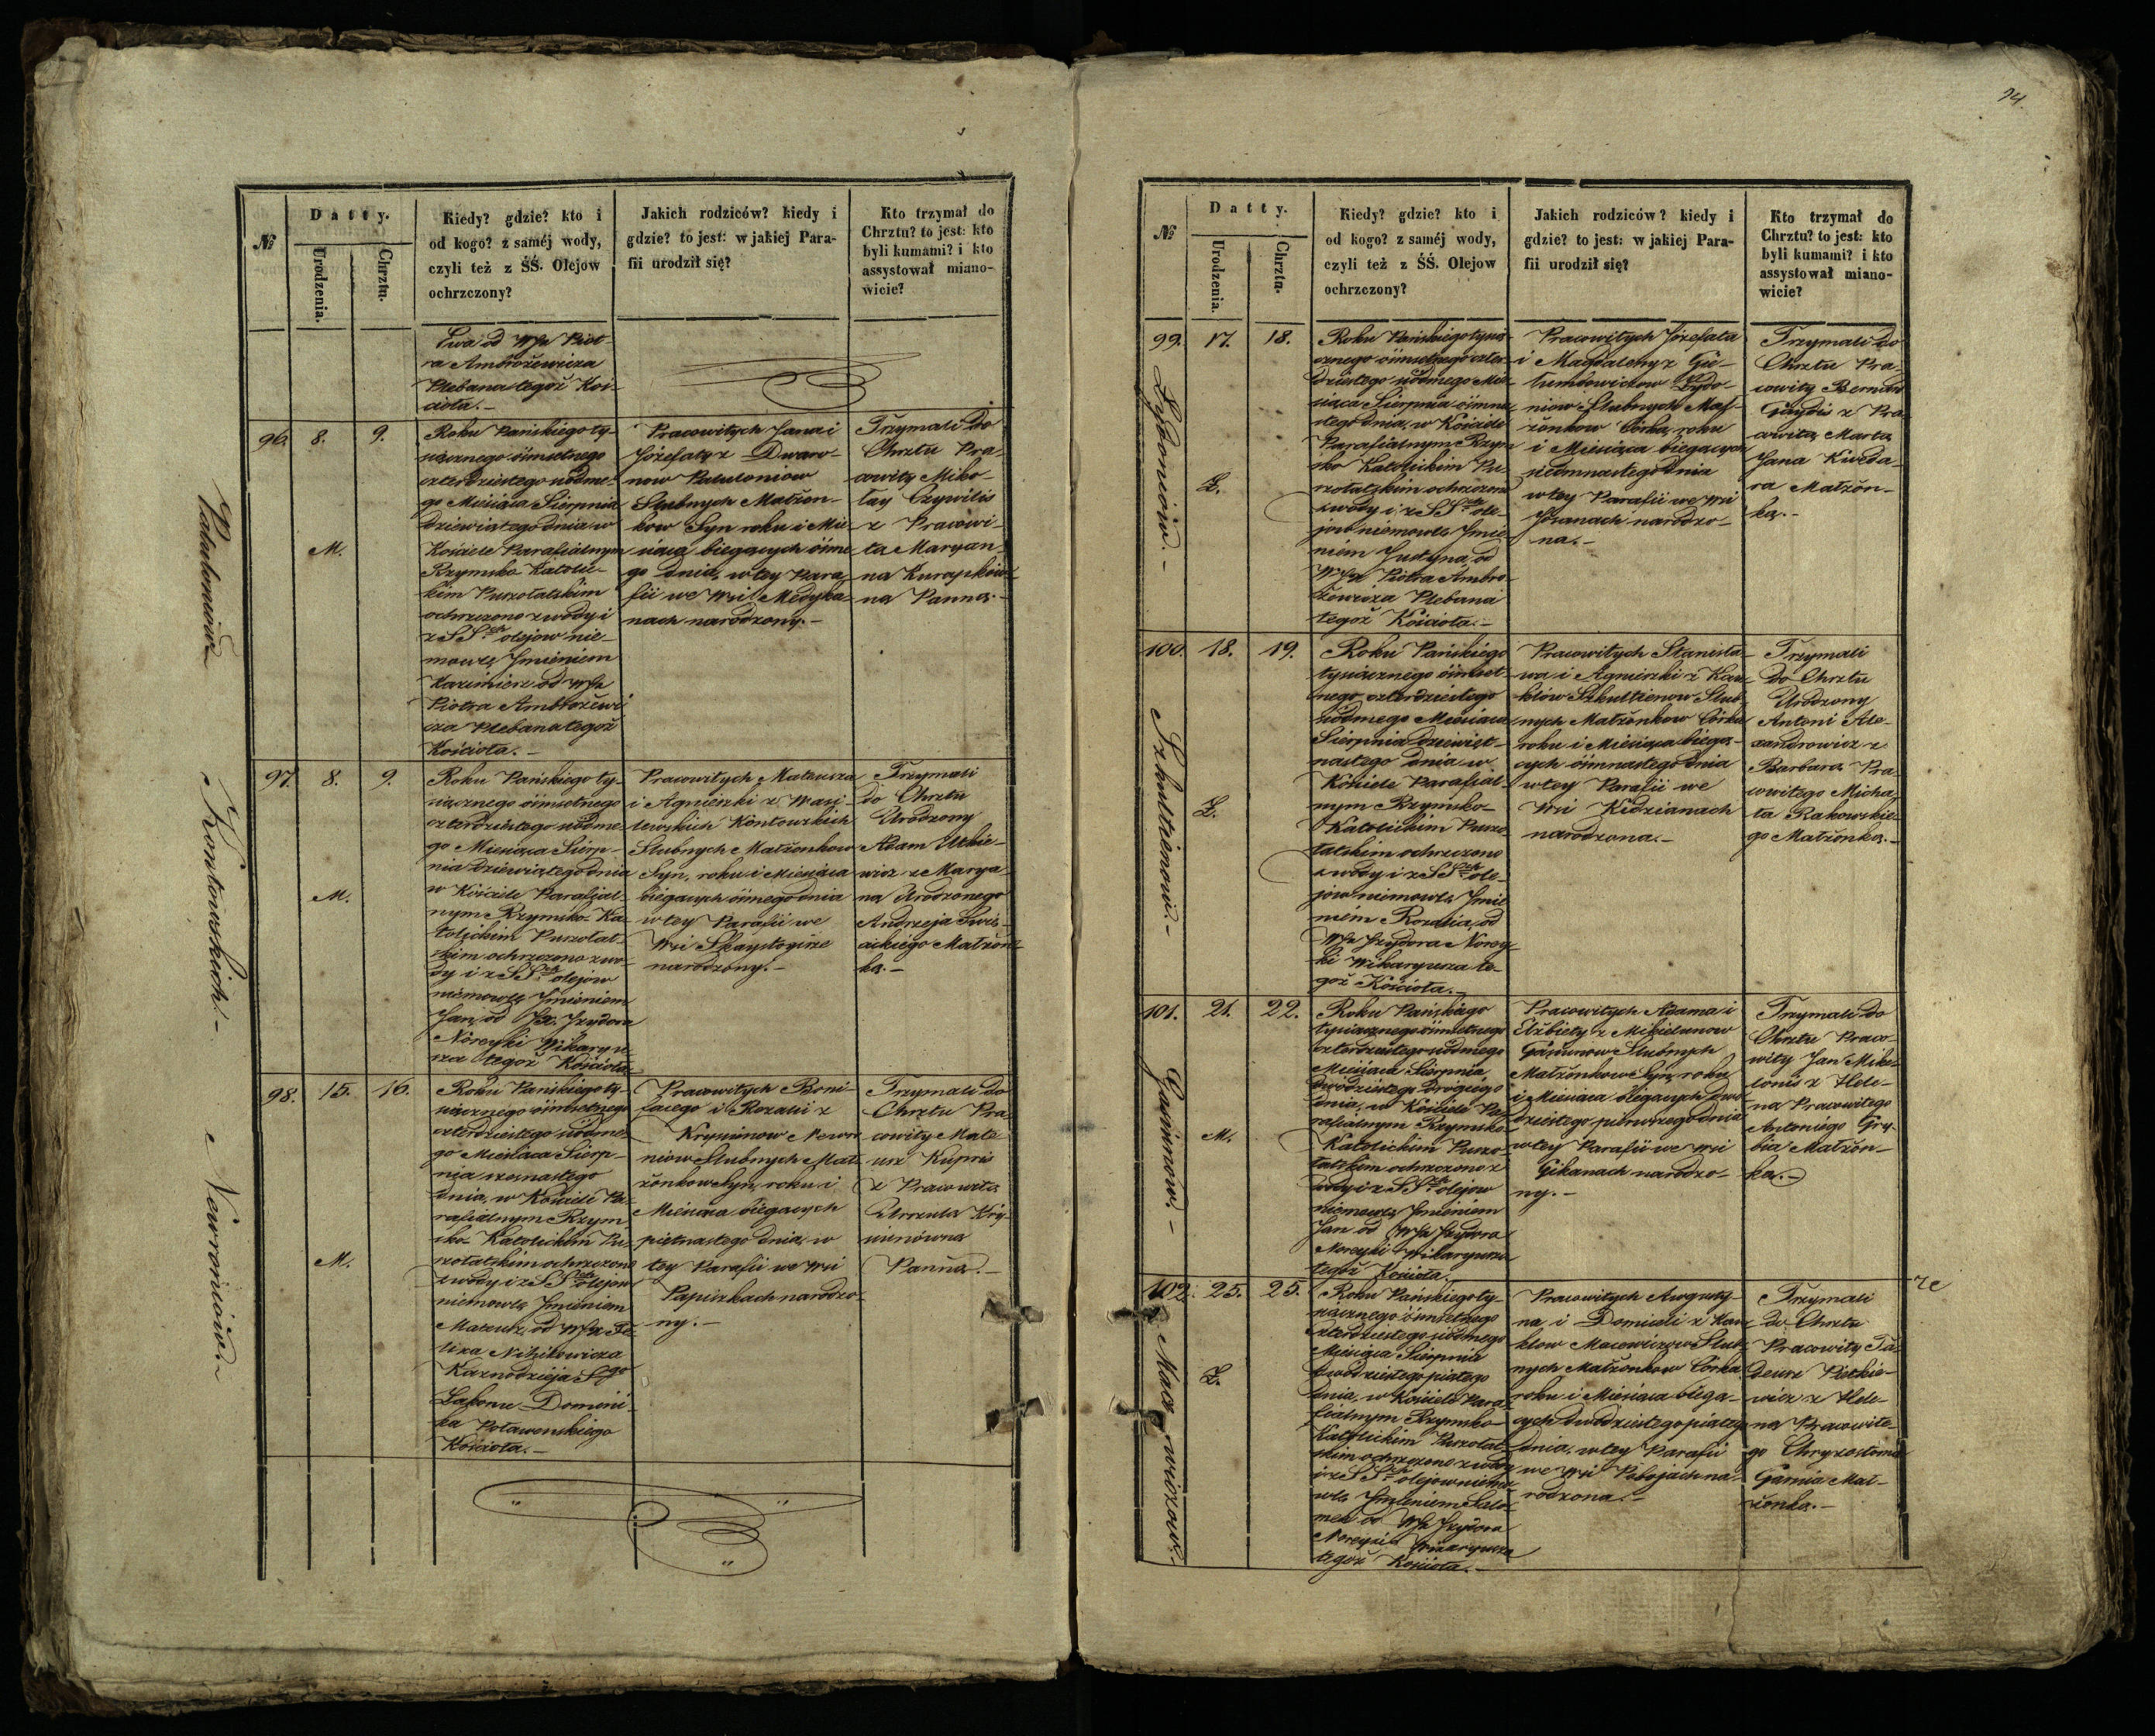 24.
№
Datty.
Urodzenia.
Chrztu.
Kiedy? gdzie? kto i
od kogo? z saméj wody,
czyli też z ŚŚ. Olejow
ochrzczony?
Jakich rodziców? kiedy i
gdzie? to jest: w jakiej Para-
fii urodził się?
Kto trzymał do
Chrztu? to jest: kto
byli kumami? i kto
assystował miano-
wicie?
Ewa od WJX Piot-
ra Ambrożewicza
Plebana tegoż Koś-
cioła.-
Patuloniow
96. 8. 9.
M.
Roku Pańskiego ty-
siącznego ośmsetnego
czterdziestego siódme-
go Miesiąca Sierpnia
dziewiątego dnia w
Kościele Parafialnym
Rzymsko Katolic-
kim Puszołatskim
ochrzczono z wody i
z SStych olejow nie-
mowle Jmieniem
Kazimierz od WJX
Piotra Ambrożewi
cza Plebana tegoż
Kościoła.-
Pracowitych Jana i
Józefaty z Dwaro-
now Patuloniow
Slubnych Małżon-
kow Syn roku i Mie-
siąca biegących ósme-
go dnia, w tey Para-
fii we Wsi Medyka-
nach narodzony.-
Trzymali do
Chrztu Pra-
cowity Miko-
łay Czywilis
z Pracowi-
ta Maryan-
na Kurapków-
na Panna.-
Kontowskich.-
97. 8. 9.
M.
Roku Pańskiego ty-
siącznego ośmsetnego
czterdziestego siódme-
go Miesiąca Sierp-
nia dziewiątego dnia
w Kościele Parafial-
nym Rzymsko-Ka-
tolickim Puszołat-
skim ochrzczono z wo-
dy i z SStych olejow
niemowle Jmieniem
Jan, od JX. Jzydora
Noreyki Wikaryu-
sza tegoż Kościoła
Pracowitych Mateusza
i Agnieszki z Wasi-
lewskich Kontowskich
Slubnych Małżonkow
Syn, roku i Miesiąca
biegących ósmego dnia
w tey Parafii we
Wsi Skaystogirze
narodzony.-
Trzymali
do Chrztu
Urodzony
Adam
wicz z Marya-
na Urodzonego
Andrzeja
Małżon-
ka.-
Newroniow.-
98. 15. 16.
M.
Roku Pańskiego ty-
siącznego ośmsetnego
czterdziestego siódme-
go Miesiąca Sierp-
nia szesnastego
dnia, w Kościele Pa-
rafialnym Rzym-
sko-Katolickim Pu-
szołatskim ochrzczono
z wody i z SStych olejow
niemowle Jmieniem
Mateusz, od WJX Fe-
lixa
Kaznodzieja Sgo
Zakonu Domini-
ka Poławenskiego
Kościoła.-
Pracowitych Boni-
facego i Rozalii z
Krysiunow Newro
niow Slubnych Mał-
żonkow Syn, roku i
Miesiąca biegących
piętnastego dnia, w
tey Parafii we Wsi
Papiszkach narodzo-
ny.-
Trzymali do
Chrztu Pra-
cowity Mate
usz Kupris
z Pracowitą
Urszula Kry-
siunówna
Panna.-
№
Datty.
Urodzenia.
Chrztu.
Kiedy? gdzie? kto i
od kogo? z saméj wody,
czyli też z ŚŚ. Olejow
ochrzczony?
Jakich rodziców? kiedy i
gdzie? to jest: w jakiej Para-
fii urodził się?
Kto trzymał do
Chrztu? to jest: kto
byli kumami? i kto
assystował miano-
wicie?
Zydoniow.-
99. 17. 18.
Ż.
Roku Pańskiego tysią-
cznego ośmsetnego czter-
dziestego siódmego Mie-
siąca Sierpnia ośmna-
stego dnia, w Kościele
Parafialnym Rzym-
sko Katolickim Pu-
szołatskim ochrzczono
z wody i z SStych ole-
jow niemowle Jmie-
niem Justyna, od
WJX Piotra Ambro-
żewicza Plebana
tegoż Kościoła.-
Pracowitych Józefata
i Magdaleny z Gie-
Zydo-
niow Slubnych Mał-
żonkow Córka, roku
i Miesiąca biegących
siedmnastego dnia
w tey Parafii we Wsi
Józanach narodzo-
na.-
Trzymali do
Chrztu Pra-
cowity Bernard
Gaydis z Pra-
cowitą Marta
Jana Kiweda-
ra Małżon-
ka.-
Szkultienow.-
100. 18. 19.
Ż.
Roku Pańskiego
tysiącznego ośmset-
nego czterdziestego
siódmego Miesiąca
Sierpnia dziewięt-
nastego dnia w
Kościele Parafial-
nym Rzymsko-
Katolickim Puszo-
łatskim ochrzczono
z wody i z SStych ole-
jow niemowle Jmie-
niem Rozalia, od
WJX Jzydora Norey-
ki Wikaryusza te-
goż Kościoła.-
Pracowitych Stanisła-
wa i Agnieszki z Kau-
klów Szkultienow Slub-
nych Małżonkow Córka
roku i Miesiąca biegą-
cych ośmnastego dnia
w tey Parafii we
Wsi Kidzianach
narodzona.-
Trzymali
do Chrztu
Urodzony
Antoni Ale-
xandrowicz z
Barbara Pra-
cowitego Micha-
ła Rakowskie-
go Małżonka.-
Gasiunow.-
101. 21. 22.
M.
Roku Pańskiego
tysiącznego ośmsetnego
czterdziestego siódmego
Miesiąca Sierpnia
dwódziestego drógiego
dnia, w Kościele Pa-
rafialnym Rzymsko-
Katolickim Puszo-
łatskim ochrzczono z
wody i z SStych olejow
niemowle Jmieniem
Jan od WJX Jzydora
Noreyki Wikaryusza
tegoż Kościoła.
Pracowitych Adama i
Elżbiety z Mikielunow
Gasiunow Slubnych
Małżonkow Syn, roku
i Miesiąca biegących dwó-
dziestego pierwszego dnia
w tey Parafii we Wsi
Gikanach narodzo-
ny.-
Trzymali do
Chrztu Praco-
wity Jan Mike-
lonis z Hele-
na Pracowitego
Antoniego Gry-
bia Małżon-
ka.-
Macewiczow.-
102. 25. 25.
Ż.
Roku Pańskiego ty-
siącznego ośmsetnego
czterdziestego siódmego
Miesiąca Sierpnia
dwódziestego piątego
dnia, w Kościele Para-
fialnym Rzymsko-
Katolickim Puszołat-
skim ochrzczono z wody
i z SStych olejow niemo-
wle Jmieniem Salo-
mea od WJX Jzydora
Noreyki Wikaryusza
tegoż Kościoła.-
Pracowitych Augusty-
na i Domicili z Kau-
klow Macewiczow Slub-
nych Małżonkow Córka
roku i Miesiąca biegą-
cych dwódziestego piątego
dnia, w tey Parafii
we Wsi Pobojach na-
rodzona.-
Trzymali
do Chrztu
Pracowity Ta-
deusz Pietkie-
wicz z Hele-
na Pracowite
go Chryzostoma
Garnia Mał-
żonka.-